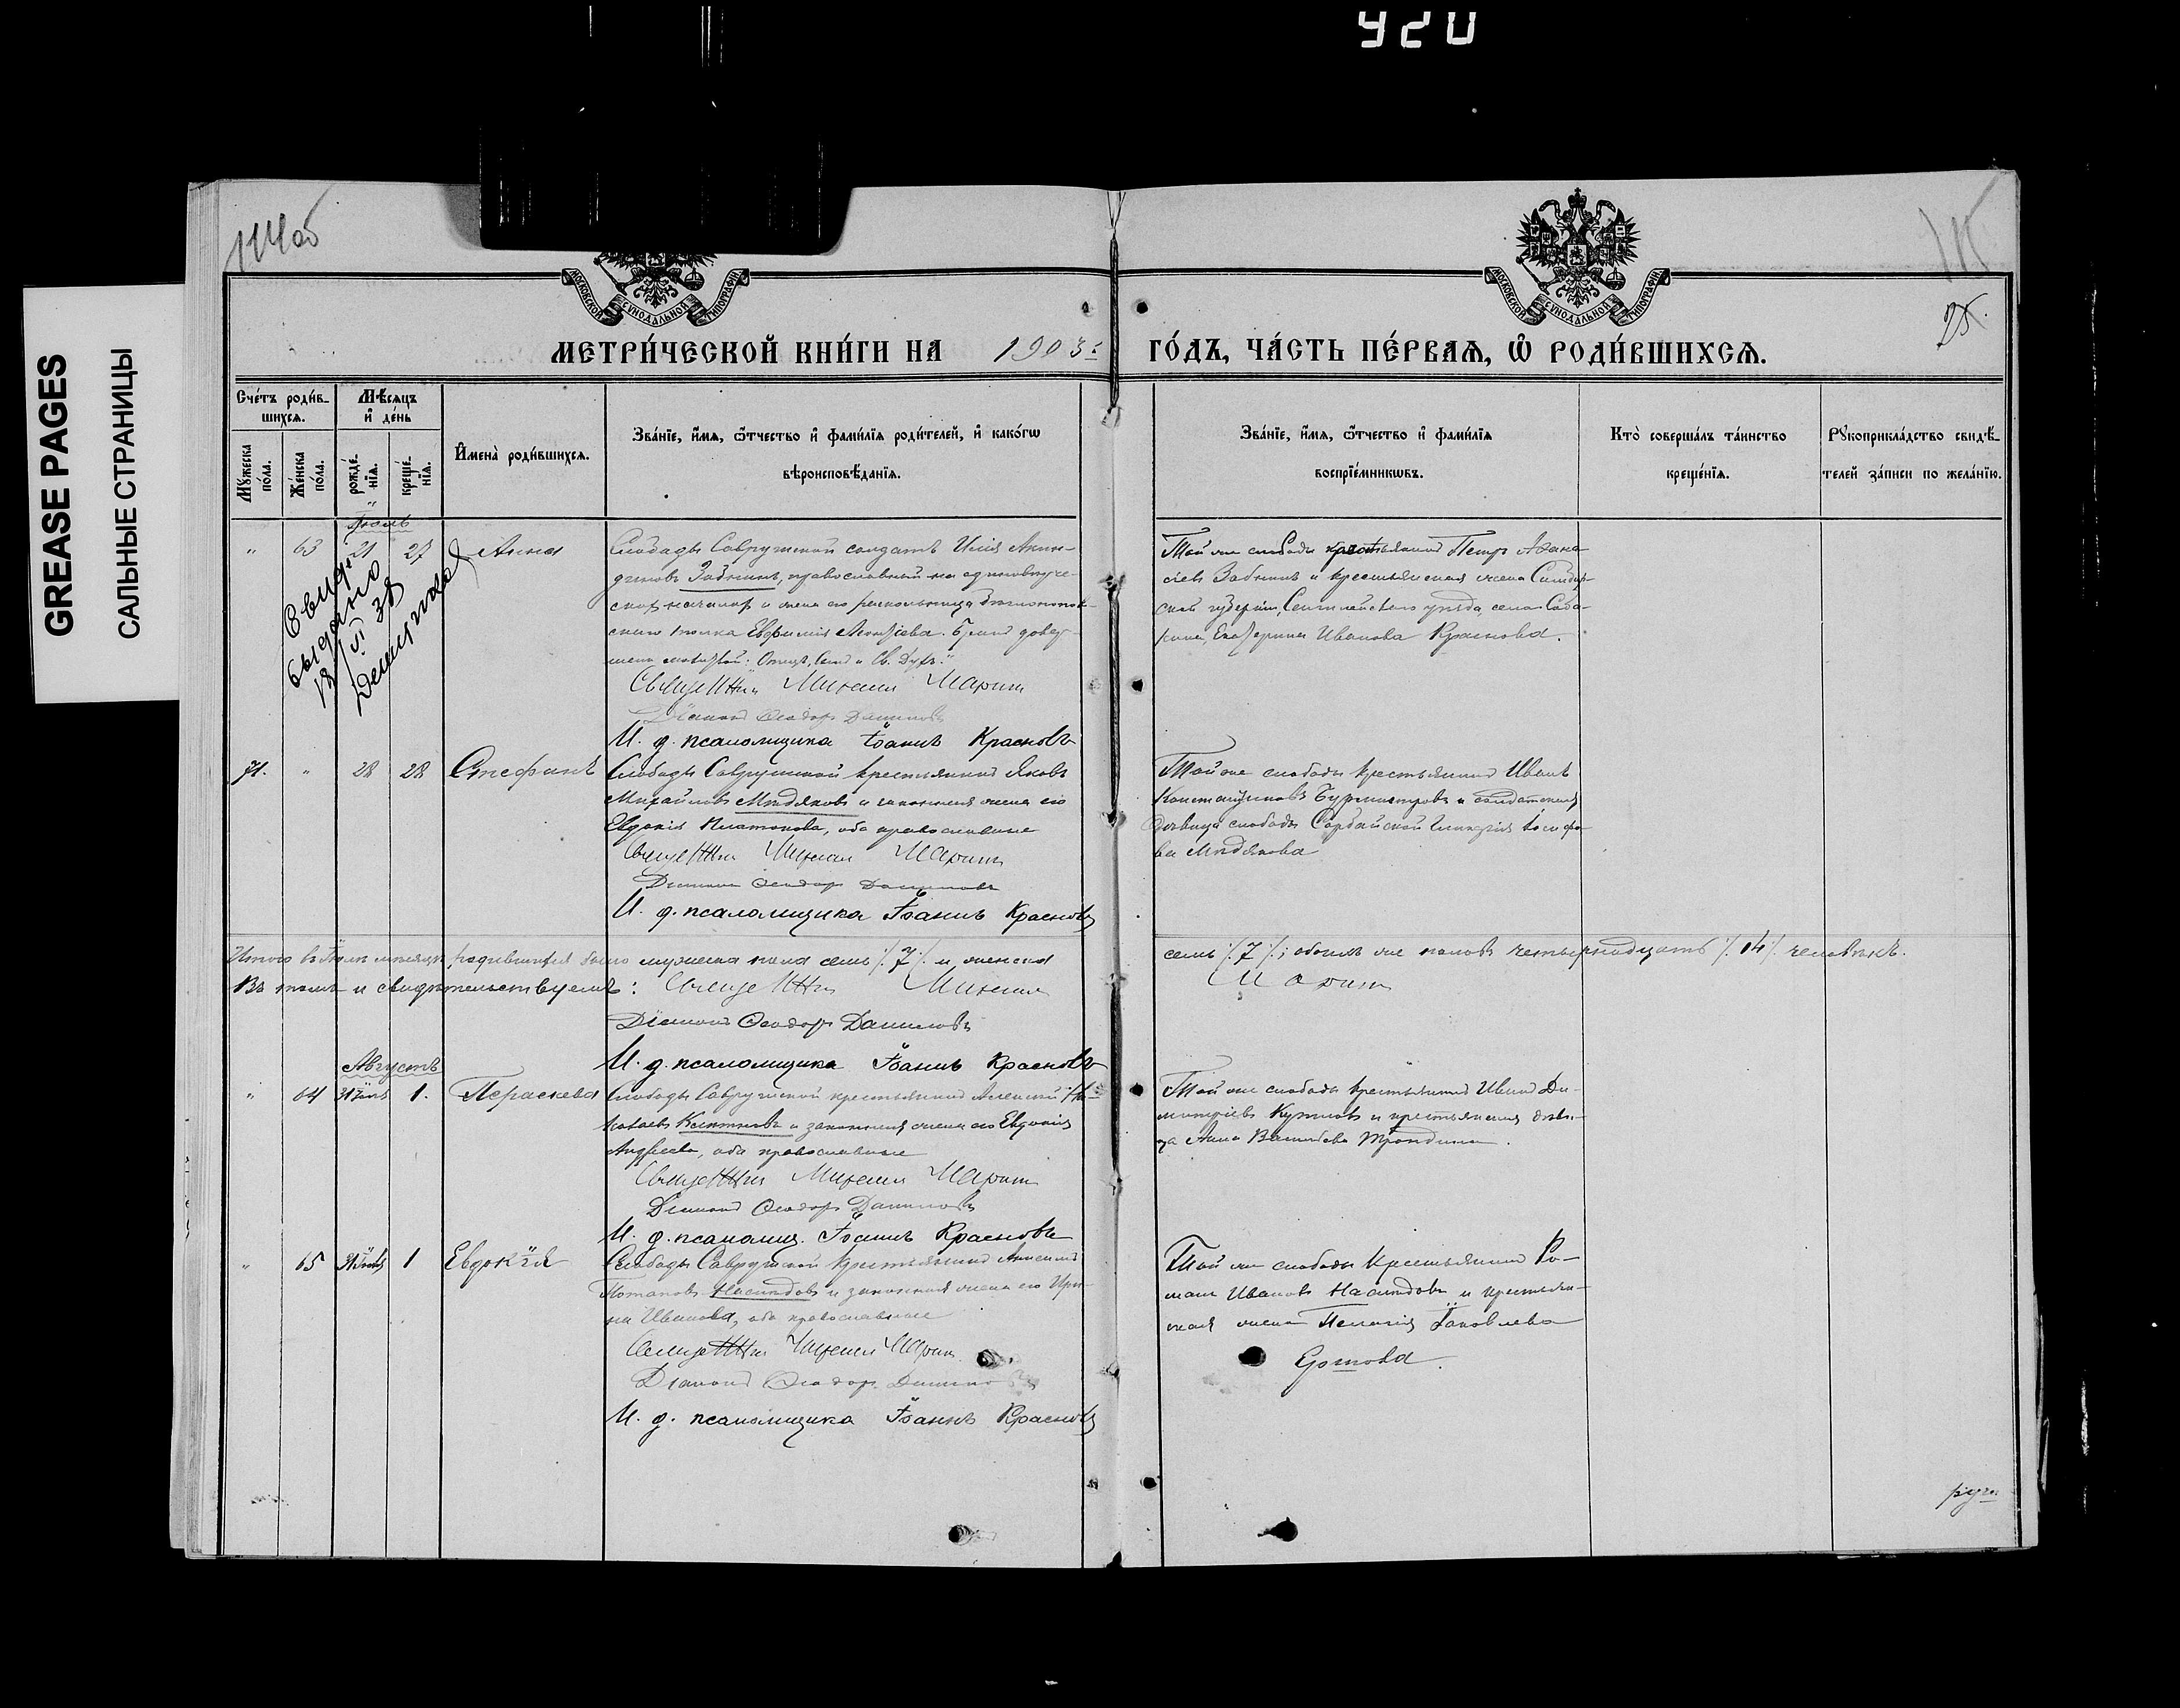 920
GREASE PAGES
САЛЬНЫЕ СТРАНИЦЫ
114об
115
25.
МОСКОВСКОЙ СѴНОДАЛЬНОЙ ТИПОГРАФІИ
МОСКОВСКОЙ СѴНОДАЛЬНОЙ ТИПОГРАФІИ
МЕТРИ́ЧЕСКОЙ КНИ́ГИ НА 1903 й ГО́ДЪ, ЧА́СТЬ ПЕ́РВАѦ, Ѡ҆ РОДИ́ВШИХСѦ.
Сче́тъ роди́в-
шихсѧ.
Мꙋ́жеска по́ла.
Же́нска по́ла.
Мѣ́сѧцъ
и҆ де́нь
рожде́-нїѧ.
креще́-нїѧ.
И҆мена̀ роди́вшихсѧ.
Зва́нїе, и҆́мѧ, ѻ҆́тчество и҆ фами́лїѧ роди́телей, и҆ како́гѡ
вѣроисповѣ́данїѧ.
Зва́нїе, и҆́мѧ, ѻ҆́тчество и҆ фами́лїѧ
воспрїе́мникѡвъ.
Кто̀ соверша́лъ та́инство
креще́нїѧ.
Рꙋкоприкла́дство свидѣ́-
телей за́писи по жела́нїю.
Іюль
" 63 21 27 Анна
Слободы Саврушской солдатъ Илія Акин-
диновъ Забнинъ, православный на единовѣрче-
скихъ началахъ и жена его раскольница
толка Евфимія Леонтіева.
Отца, Сына и Св. Духа."
Священникъ Михаилъ Маринъ
Діаконъ Ѳеодоръ Даниловъ
И. д. псаломщика Іоаннъ Красновъ
Той же слободы крестьянинъ Петръ Аѳана-
сіевъ Забнинъ и крестьянская жена Симбир-
ской губерніи, Сенгилейскаго уѣзда, села
Екатерина Иванова Краснова.
выдано
18/VI 38
71. " 28 28 Стефанъ
Слободы Саврушской крестьянинъ Яковъ
Михайловъ Мидяковъ и законная жена его
Евдокія Платонова, оба православные
Священникъ Михаилъ Маринъ
Діаконъ Ѳеодоръ Даниловъ
И. д. псаломщика Іоаннъ Красновъ
Той же слободы крестьянинъ Иванъ
Константиновъ Бурмистровъ и солдатская
дѣвица слободы Сарбайской Іосифо-
ва Мидякова
Итого въ Іюлѣ мѣсяцѣ родившихся было мужеска пола семь ./. 7 ./. и женска
семь ./. 7 ./.; обоихъ же половъ четырнадцать ./. 14 ./. человѣкъ.
Въ томъ и свидѣтельствуемъ: Священникъ Михаилъ Маринъ
Діаконъ Ѳеодоръ Даниловъ
И. д. псаломщика Іоаннъ Красновъ
Августъ
" 64 31 Іюля 1. Параскева
Слободы Саврушской крестьянинъ Алексій Ни-
колаевъ и законная жена его Евдокія
Андреева, оба православные
Священникъ Михаилъ Маринъ
Діаконъ Ѳеодоръ Даниловъ
И. д. псаломщ. Іоаннъ Красновъ
Той же слободы крестьянинъ Иванъ Ди-
митріевъ и крестьянская дѣви-
ца Анна Васильева
" 65 31 Іюля 1 Евдокія
Слободы Саврушской крестьянинъ
Потаповъ Насыидовъ и законная жена его Ири-
на Иванова, оба православные
Священникъ Михаилъ Маринъ
Діаконъ Ѳеодоръ Даниловъ
И. д. псаломщика Іоаннъ Красновъ
Той же слободы крестьянинъ Ро-
манъ Ивановъ и крестьян-
ская жена Пелагія Іаковлева